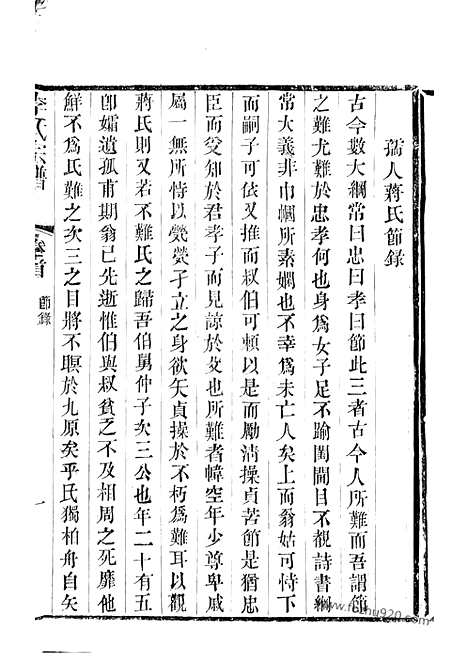 孺人蔣氏節錄
古今數大綱常曰忠曰孝曰節此三者古今人所難而吾謂節
之難尤難於忠孝何也身爲女子足不踰閨閫目不覩詩書綱
常大義非巾幗所素嫺也不幸爲未亡人矣上而翁姑可恃下
而嗣子可依又推而叔伯可頼以是而勵清操貞苦節是猶忠
臣而受知於君孝子而見諒於父也所難者幃空年少尊卑戚
屬一無所恃以煢煢孑立之身欲矢貞操於不朽爲難耳以觀
蔣氏則又若不難氏之歸吾伯舅仲子次三公也年二十有五
卽孀遺孤甫期翁已先逝惟伯與叔貧乏不及相周之死靡他
鮮不爲氏難之次三之目將不瞑於九原矣乎氏獨柏舟自矢
李氏宗譜
卷首
節錄
一